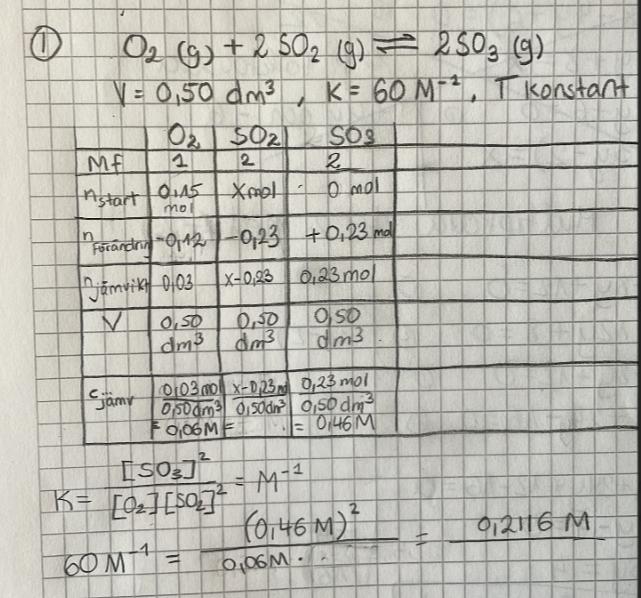 ① O₂ (g) + 2 SO₂ (g) ⇌ 2SO₃ (g)
V = 0,50 dm³ , K = 60 M⁻¹ , T konstant
O₂ SO₂ SO₃
Mf 1 2 2
n start 0,15 mol X mol 0 mol
n Förändring -0,12 -0,23 +0,23 mol
n jämvikt 0,03 x-0,23 0,23 mol
V 0,50 dm³ 0,50 dm³ 0,50 dm³
c jämv 0,03 mol / 0,50 dm³ = 0,06 M x-0,23 m / 0,50 dm³ = 0,23 mol / 0,50 dm³ = 0,46 M
K = [SO₃]² / [O₂][SO₂]² = M⁻¹
60 M⁻¹ = (0,46 M)² / 0,06 M · = 0,2116 M